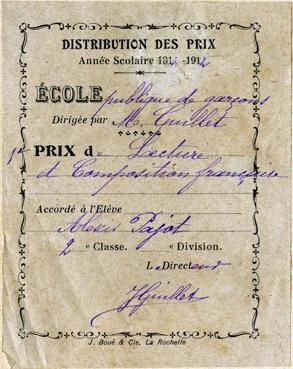 DISTRIBUTION DES PRIX
Année Scolaire 191 -191
ÉCOLE publique de garçons
Dirigée par M. Guillet
1er PRIX de Lecture
et Composition française
Accordé à l'Elève
Alexis Pajot
2e Classe. e Division.
Le Directeur
J Guillet
J. Boué & Cie, La Rochelle